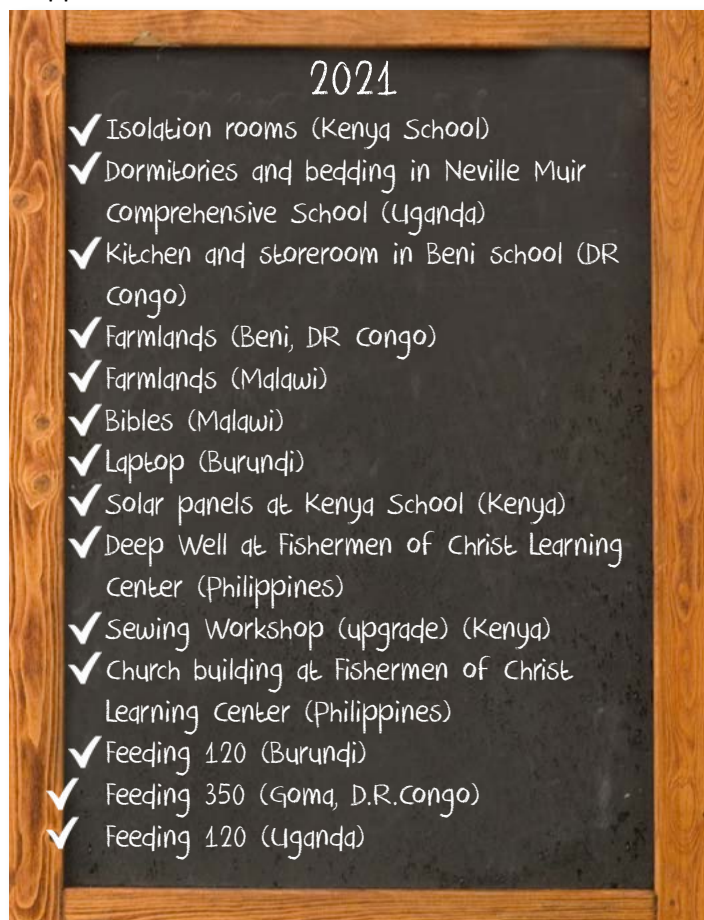 2021
Isolation rooms (Kenya School)
Dormitories and bedding in Neville Muir
Comprehensive School (Uganda)
Kitchen and storeroom in Beni school (DR
Congo)
Farmlands (Beni, DR Congo)
Farmlands (Malawi)
Bibles (Malawi)
Laptop (Burundi)
Solar panels at Kenya School (Kenya)
Deep Well at Fishermen of Christ Learning
Center (Philippines)
Sewing Workshop (upgrade) (Kenya)
Church building at Fishermen of Christ
Learning Center (Philippines)
Feeding 120 (Burundi)
Feeding 350 (Goma, D.R.Congo)
Feeding 120 (Uganda)